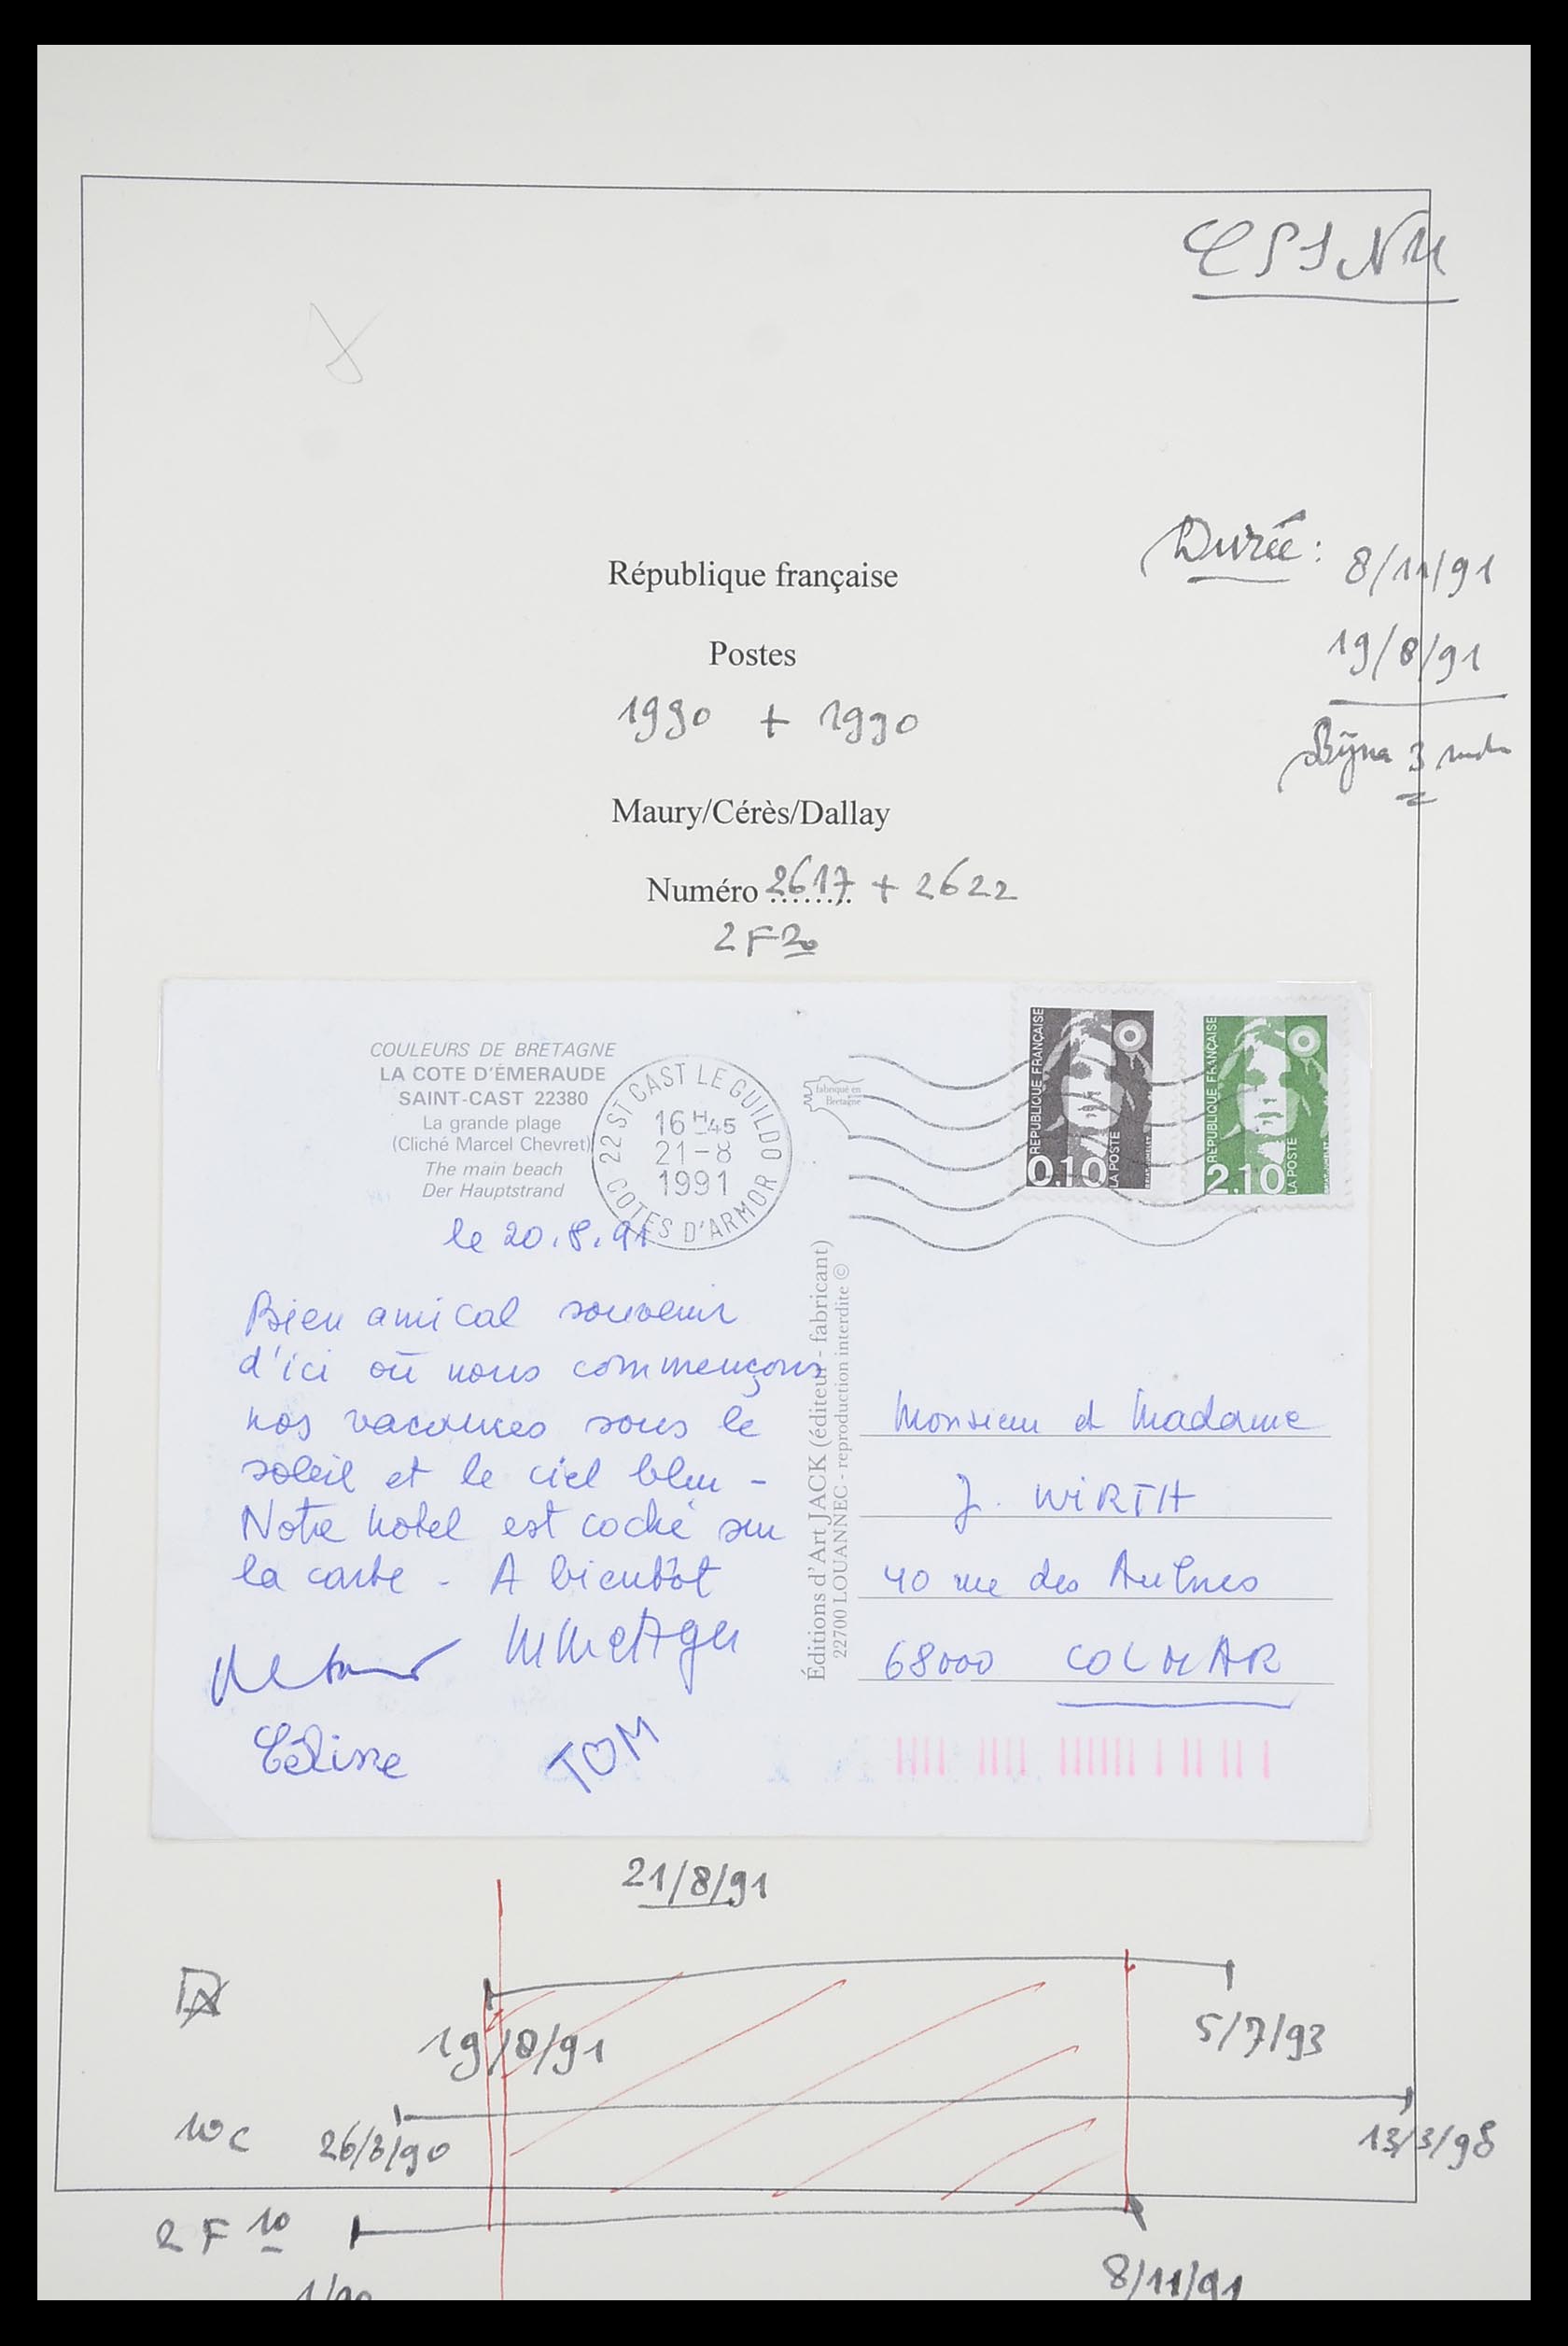 Durée : 8/11/91
19/8/91
3
République française
Postes
1990 + 1990
Maury/Cérès/Dallay
Numéro 2617 + 2622
2 F 20
COULEURS DE BRETAGNE
LA COTE D'ÉMERAUDE
SAINT-CAST 22380
La grande plage
(Cliché Marcel Chevret)
The main beach
Der Hauptstrand
22 ST CAST LE GUILDO
16 H 45
21-8
1991
COTES D'ARMOR
fabriqué en
Bretagne
REPUBLIQUE FRANÇAISE
0,10
LA POSTE
REPUBLIQUE FRANÇAISE
2,10
LA POSTE
le 20.8.91
Bien amical souvenir
d'ici où nous commençons
nos vacances sous le
soleil et le ciel bleu -
Notre hotel est coché sur
la carte - A bientôt
Céline
TOM
Éditions d'Art JACK (éditeur - fabricant)
22700 LOUANNEC - reproduction interdite ©
Monsieur et Madame
J. WIRTH
40 rue des Aulnes
68000 COLMAR
21/8/91
19/8/91
5/7/93
10 c
26/3/90
13/3/98
2 F 10
8/11/91